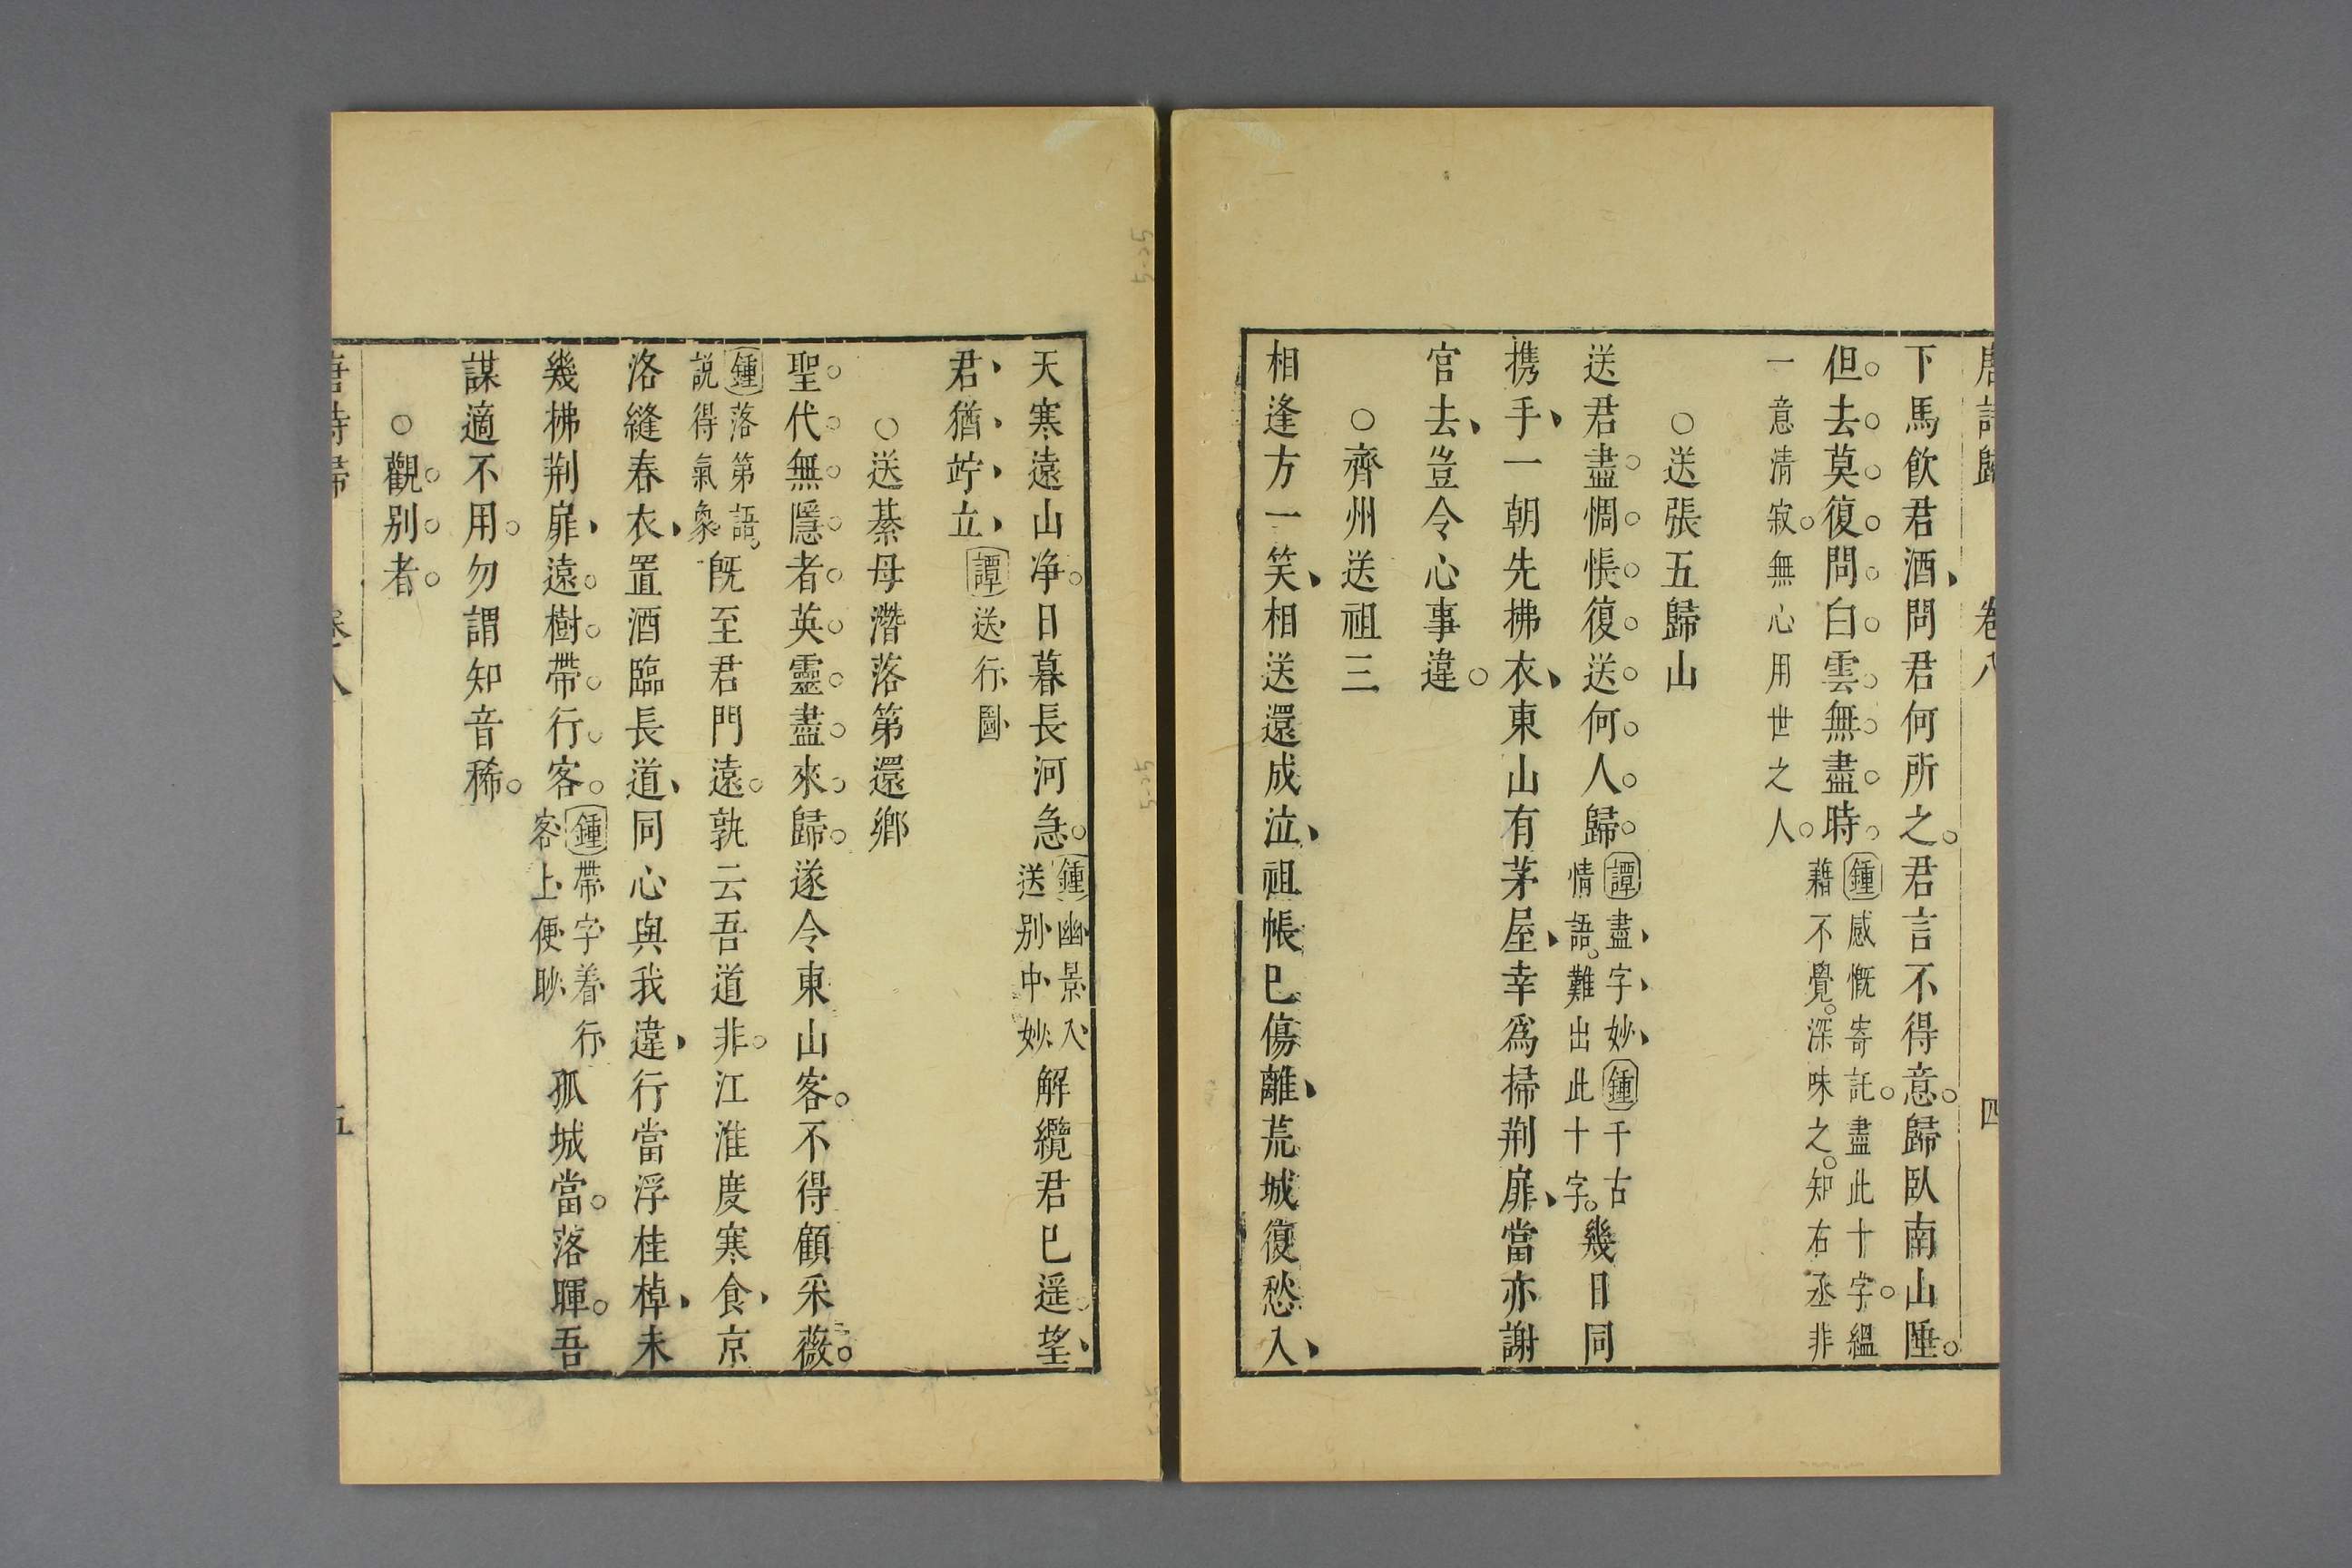 唐詩歸 卷八 四
下馬飲君酒問君何所之君言不得意歸臥南山陲
但去莫復問白雲無盡時鍾感慨寄託盡此十字縕
藉不覺深味之知右丞非
一意清寂無心用世之人
○送張五歸山
送君盡惆悵復送何人歸譚盡字妙鍾千古
情語難出此十字幾日同
携手一朝先拂衣東山有茅屋幸爲掃荆扉當亦謝
官去豈令心事違
○齊州送祖三
相逢方一笑相送還成泣祖帳已傷離荒城復愁入
天寒遠山净日暮長河急鍾幽景入
送别中妙解纜君已遥望
君猶竚立譚送行圖
○送綦母潛落第還鄉
聖代無隱者英靈盡來歸遂令東山客不得顧采薇
鍾落第語
説得氣象旣至君門遠孰云吾道非江淮度寒食京
洛縫春衣置酒臨長道同心與我違行當浮桂棹未
幾拂荆扉遠樹帶行客鍾帶字着行
客上便眇孤城當落暉吾
謀適不用勿謂知音稀
○觀别者
唐詩歸 卷八 五
5-25
5-25